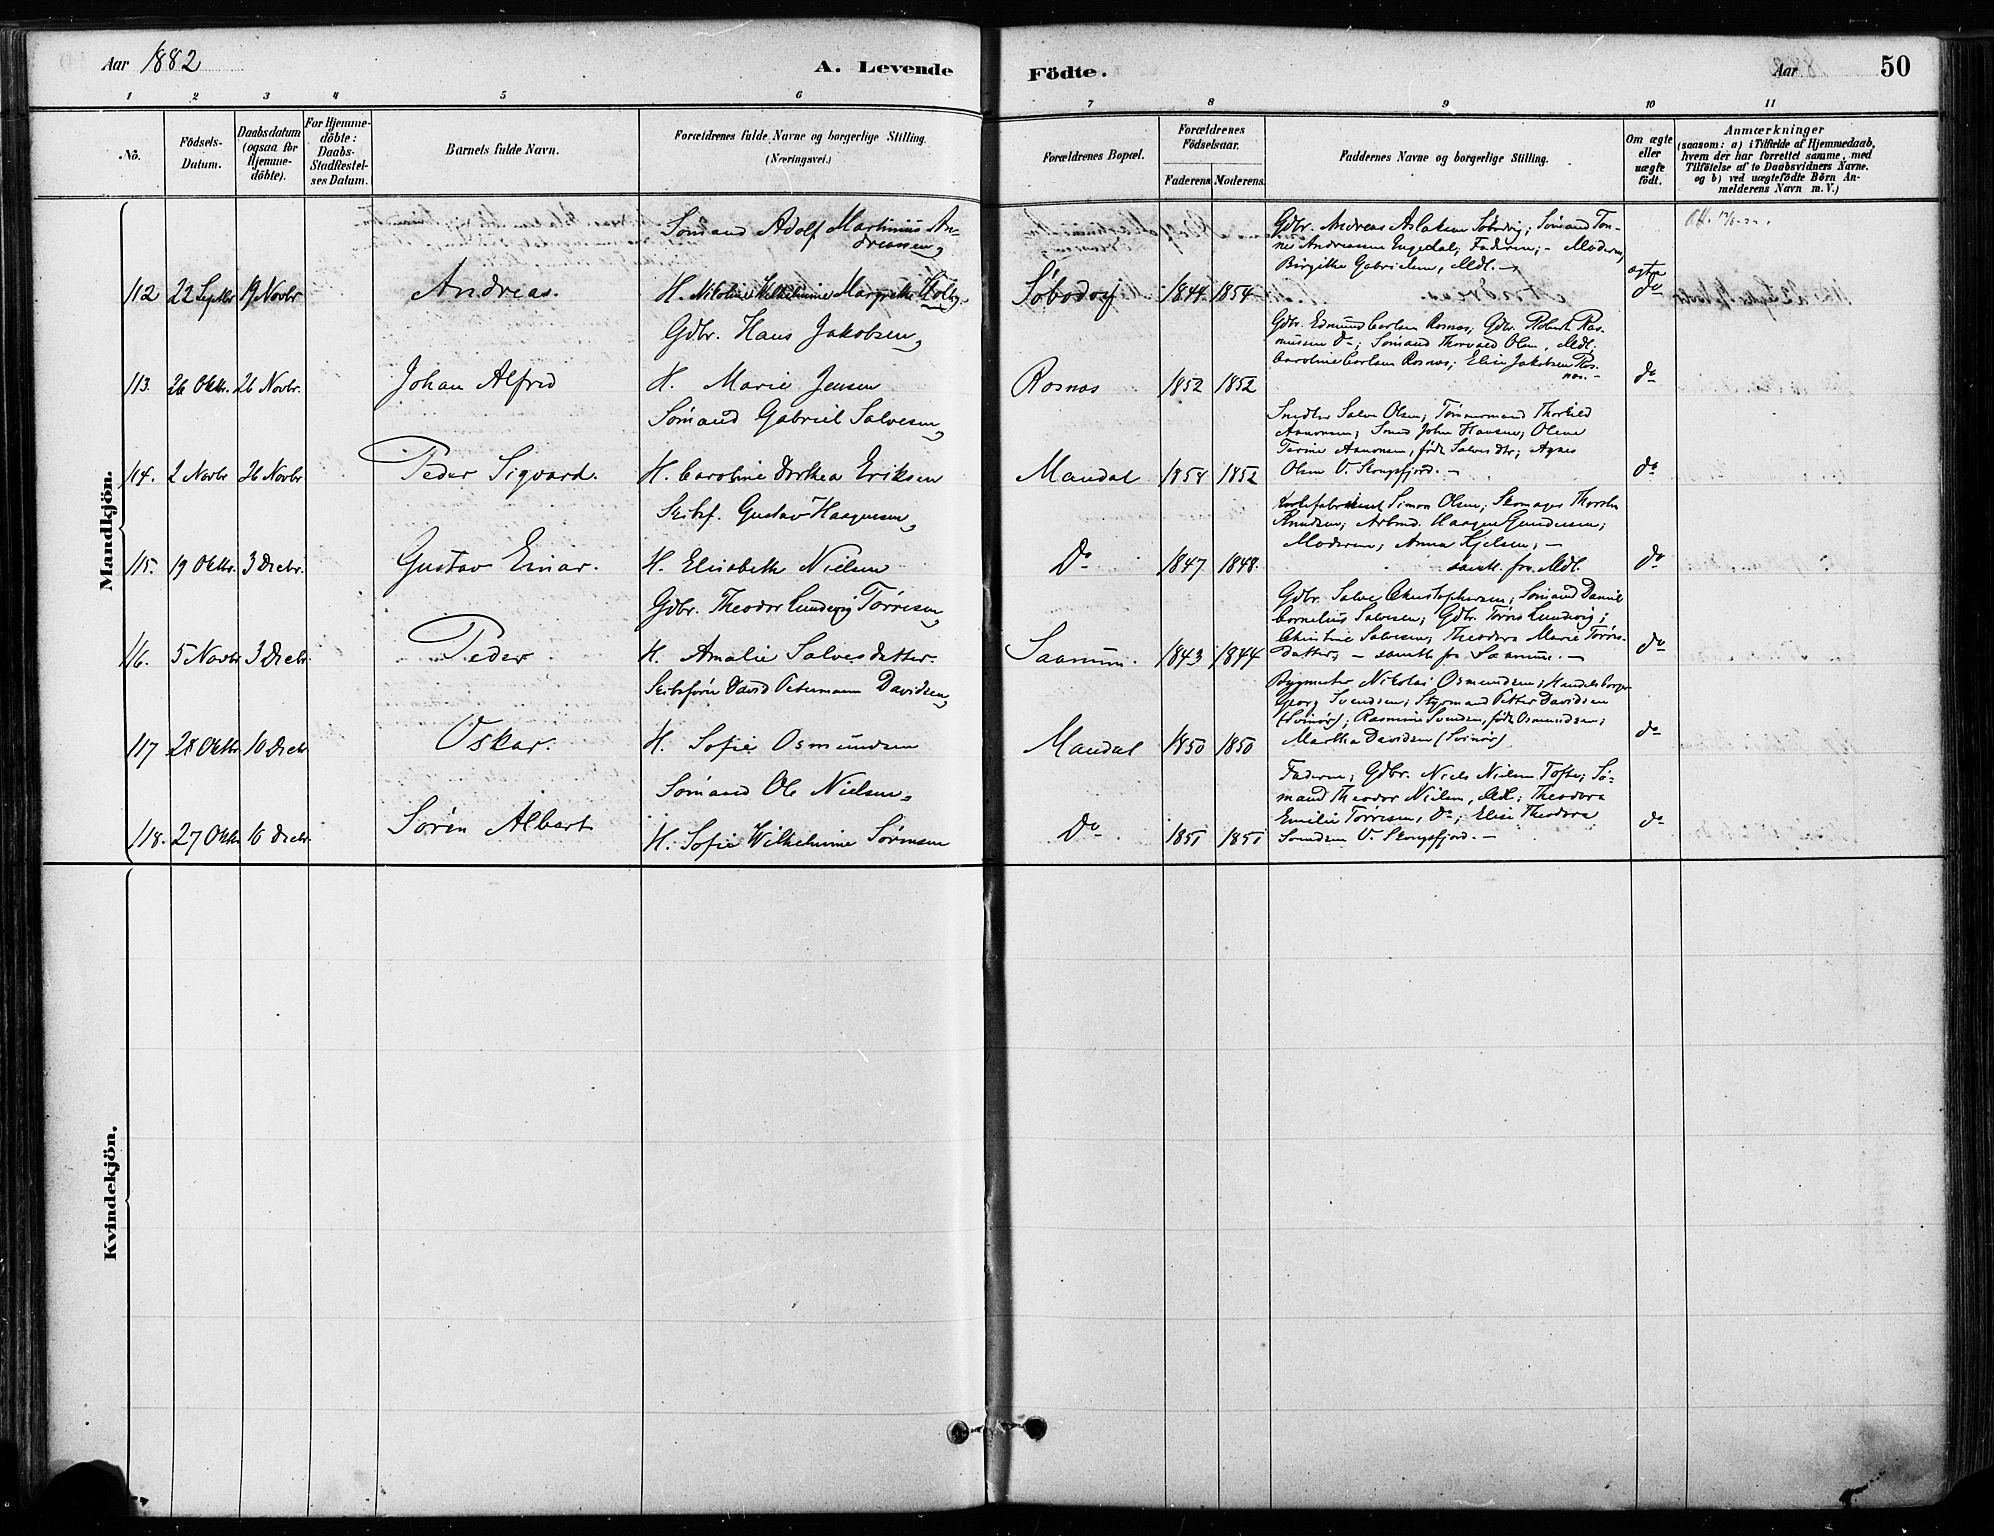 Aar 1882
A. Levende
Födte.
Aar
50
1 2 3 4 5 6 7 8 9 10 11
No.
Födsels-
Datum.
Daabsdatum
(ogsaa for
Hjemme-
döbte).
For Hjemme-
döbte:
Daabs-
Stadfæstel-
ses Datum.
Barnets fulde Navn.
Forældrenes fulde Navne og borgerlige Stilling.
(Næringsvei.)
Forældrenes Bopæl.
Forældrenes
Födselsaar.
Faderens Moderens
Faddernes Navne og borgerlige Stilling.
Om ægte
eller
uægte
födt.
Anmærkninger
(saasom: a) i Tilfælde af Hjemmedaab,
hvem der har forrettet samme, med
Tilföielse af to Daabsvidners Navne.
og b) ved uægtefödte Börn An-
melderens Navn m. V.)
Mandkjön.
Sömand Adolf Martinius An-
dreassen,
Gdbr. Andreas Aslaksen Söbodvig; Sömand Tön-
nes Andreassen Engedal; Faderen; - Moderen,
Birgithe Gabrielsen, Mdl. -
112 22 Septbr 19 Novbr Andreas. H. Nikoline Wilhelmine Margrethe Holby. Söbodvig 1844 1854 ægte
do
Gdbr. Hans Jakobsen,
Gdbr. Edmund Carlsen Rosnæs; Gdbr. Robert Ras-
mussen do; Sömand Thorvald Olsen, Mdl.
Caroline Carlsen Rosnæs; Elise Jakobsen Ros-
næs. -
113. 26 Oktbr. 26 Novbr. Johan Alfred H. Marie Jensen Rosnæs 1852 1852 do
Sömand Gabriel Salvesen,
Snedker Salve Olsen; Tömmermand Thorkild
Aanonsen; Smed John Hansen; Oline
Tarine Aanonsen, födt Salvesdtr; Agnes
Olsen V. Skogsfjord. -
114. 2 Novbr 26 Novbr Peder Sigvard. H. Caroline Dorthea Eriksen Mandal 1858 1852 do
Skibsf. Gustav Haagensen,
Simon Olsen; Skomager Thorsten
Knudsen; Arbmd. Haagen Gundersen;
Moderen; Anna Kjelsen; -
samtl. fra Mdl.
115. 19 Oktbr. 3 Decbr. Gustav Einar. H. Elisabeth Nielsen Do 1847 1848. do
Gdbr. Theodor Lundevig Törresen,
Gdbr. Salve Christophersen; Sömand Daniel
Cornelius Salvesen; Gdbr. Törres Lundevig;
Christine Salvesen; Theodora Marie Törres-
datter; - samtl. fra Saanum. -
116. 5 Novbr 3 Decbr. Peder. H. Amalie Salvesdatter. Saanum. 1843 1844 do
Skibsförer David Petermann Davidsen,
Bygmester Nikolai Osmundsen; Handelsborger
Georg Svendsen; Styrmand Petter Davidsen
(Svinör); Rasmine Svendsen, födt Osmundsen;
Martha Davidsen (Svinör).
117 28 Oktbr 10 Decbr Oskar. H. Sofie Osmundsen Mandal 1850 1850 do
Sömand Ole Nielsen,
Faderen; Gdbr. Niels Nielsen Tofte; Sö-
mand Theodor Nielsen, Mdl; Theodora
Emilie Törresen, do; Elise Theodora
Svendsen V. Skogsfjord. -
118. 27 Oktbr 10 Decbr. Sören Albert H. Sofie Wilhelmine Sörensen Do 1851 1851 do
Kvindekjön.